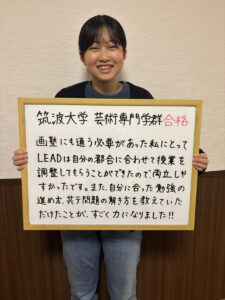 筑波大学 芸術専門学群合格
画塾にも通う必要があった私にとって
LEADは自分の都合に合わせて授業を
調整してもらうことができたので、両立しや
すかったです。また、自分に合った勉強の
進め方、共テ問題の解き方を教えていた
だけたことが、すごく力になりました!!